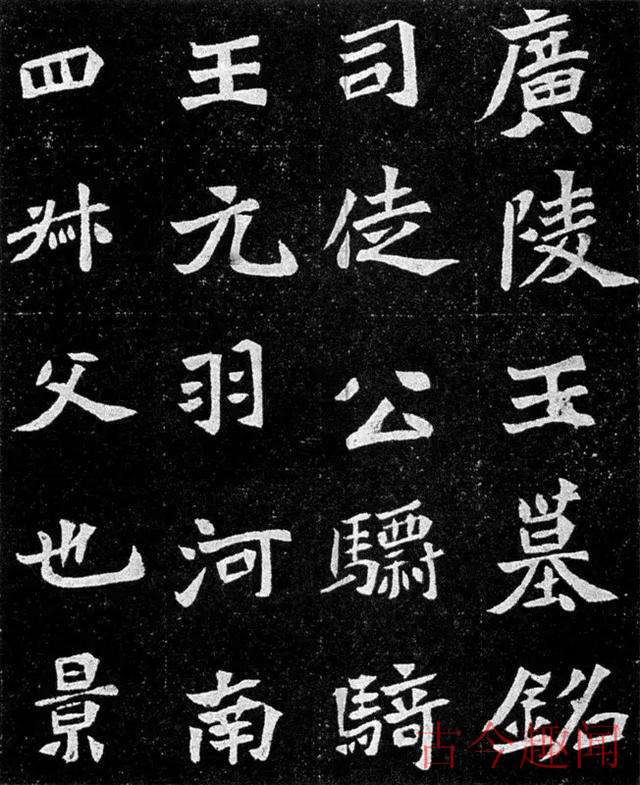 廣陵王墓銘
司徒公驃騎
王元羽河南
四叔父也景
古今趣闻